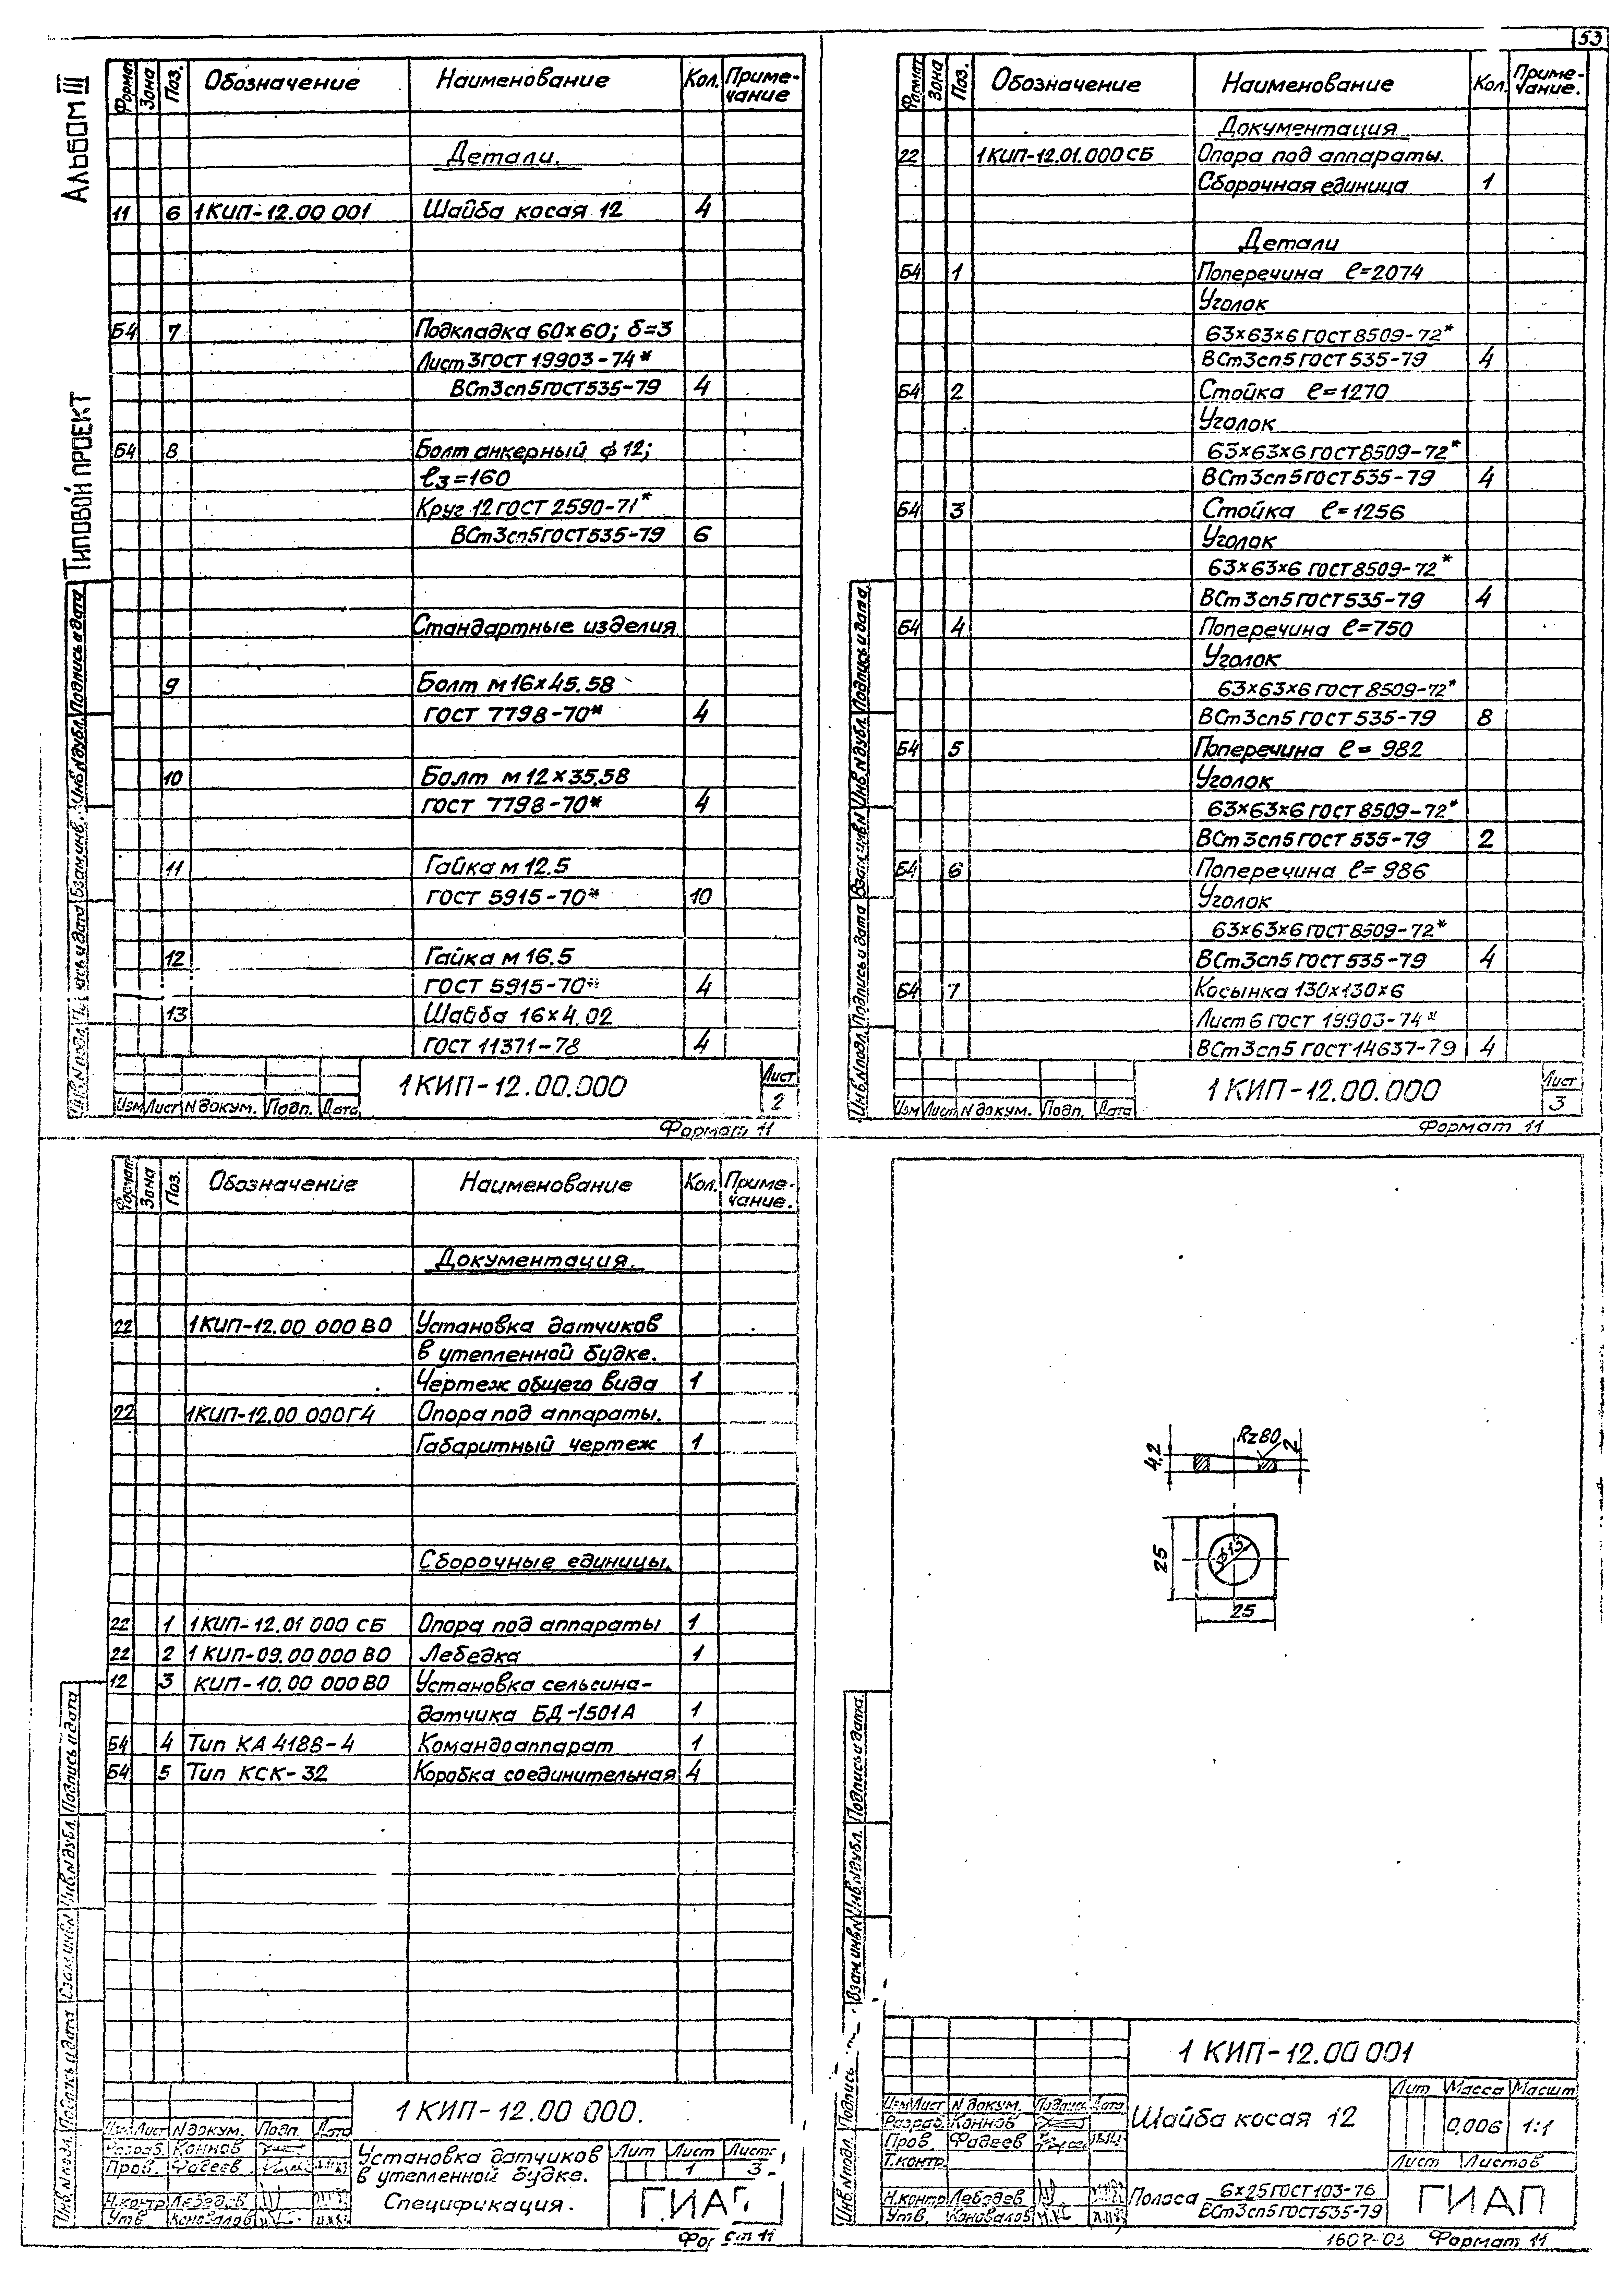 53
Альбом III
Типовой проект
Формат Зона Поз. Обозначение Наименование Кол. Приме-
чание
Детали.
11 6 1КИП-12.00 001 Шайба косая 12 4
Б4 7 Подкладка 60×60; δ=3
Лист 3 ГОСТ 19903-74*
ВСт3сп5 ГОСТ 535-79 4
Б4 8 Болт анкерный ф12;
ℓ3=160
Круг 12 ГОСТ 2590-71*
ВСт3сп5 ГОСТ 535-79 6
Стандартные изделия
9 Болт М16×45.58
ГОСТ 7798-70* 4
10 Болт М12×35.58
ГОСТ 7798-70* 4
11 Гайка М12.5
ГОСТ 5915-70* 10
12 Гайка М16.5
ГОСТ 5915-70* 4
13 Шайба 16×4.02
ГОСТ 11371-78 4
Инв.N подл. Подпись и дата Взам.инв.N Инв.N дубл. Подпись и дата
Изм Лист N докум. Подп. Дата
1КИП-12.00.000
Лист
2
Формат 11
Формат Зона Поз. Обозначение Наименование Кол. Приме-
чание.
Документация
22 1КИП-12.01.000 СБ Опора под аппараты.
Сборочная единица 1
Детали
Б4 1 Поперечина ℓ=2074
Уголок
63×63×6 ГОСТ 8509-72*
ВСт3сп5 ГОСТ 535-79 4
Б4 2 Стойка ℓ=1270
Уголок
63×63×6 ГОСТ 8509-72*
ВСт3сп5 ГОСТ 535-79 4
Б4 3 Стойка ℓ=1256
Уголок
63×63×6 ГОСТ 8509-72*
ВСт3сп5 ГОСТ 535-79 4
Б4 4 Поперечина ℓ=750
Уголок
63×63×6 ГОСТ 8509-72*
ВСт3сп5 ГОСТ 535-79 8
Б4 5 Поперечина ℓ=982
Уголок
63×63×6 ГОСТ 8509-72*
ВСт3сп5 ГОСТ 535-79 2
Б4 6 Поперечина ℓ=986
Уголок
63×63×6 ГОСТ 8509-72*
ВСт3сп5 ГОСТ 535-79 4
Б4 7 Косынка 130×130×6
Лист 6 ГОСТ 19903-74*
ВСт3сп5 ГОСТ 14637-79 4
Инв.N подл. Подпись и дата Взам.инв.N Инв.N дубл. Подпись и дата
Изм Лист N докум. Подп. Дата
1КИП-12.00.000
Лист
3
Формат 11
Формат Зона Поз. Обозначение Наименование Кол. Приме-
чание.
Документация.
22 1КИП-12.00 000 ВО Установка датчиков
в утепленной будке.
Чертеж общего вида 1
22 1КИП-12.00 000 ГЧ Опора под аппараты.
Габаритный чертеж 1
Сборочные единицы.
22 1 1КИП-12.01 000 СБ Опора под аппараты 1
22 2 1КИП-09.00 000 ВО Лебедка 1
12 3 КИП-10.00 000 ВО Установка сельсина-
датчика БД-1501А 1
Б4 4 Тип КА 4188-4 Командоаппарат 1
Б4 5 Тип КСК-32 Коробка соединительная 4
Инв.N подл. Подпись и дата Взам.инв.N Инв.N дубл. Подпись и дата
1КИП-12.00 000.
Изм Лист N докум. Подп. Дата
Разраб. Коннов
Пров. Фадеев
Н.контр Лебедев
Утв Коновалов
Установка датчиков
в утепленной будке.
Спецификация.
Лит Лист Листов
1 3
ГИАП
Формат 11
Rz80
4,2
2
25
ф13
25
Инв.N подл. Подпись Взам.инв.N Инв.N дубл. Подпись и дата.
1 КИП-12.00 001
Изм Лист N докум. Подпись Дата
Разраб. Коннов
Пров Фадеев
Т.контр.
Н.контр Лебедев
Утв. Коновалов
Шайба косая 12
Лит Масса Масшт
0,006 1:1
Лист Листов
Полоса 6×25 ГОСТ 103-76
ВСт3сп5 ГОСТ 535-79
ГИАП
1607-03 Формат 11